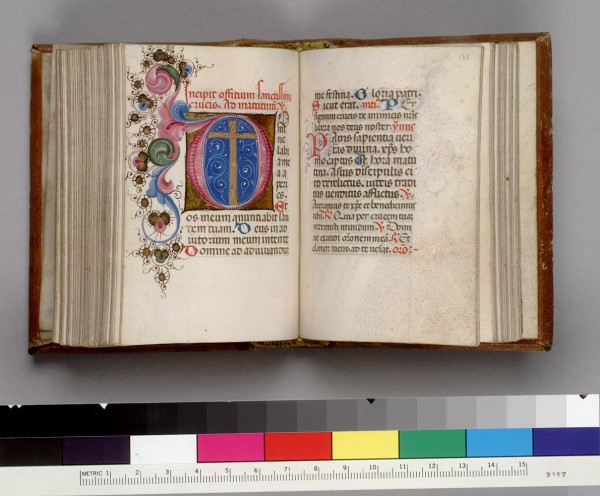 Incipit offitium sanctissime
crucis. Ad matutinum. V.
Domi
ne
labi
a me
a a
peri
es. Et
os meum annuntiabit lau
dem tuam. Deus in ad
iutorium meum intende
Domine ad adiuvandum
me festina. Gloria patri.
Sicut erat. anti. Per
signum crucis de inimicis nris
libera nos deus noster. ymus
Patris sapientia veri
tas divina. xps ho
mo captus est hora matu
tina. A suis discipulis ci
to derelictus. iudeis tradi
tus venditus afflictus. V.
Adoramus te xpe et benedicimus
tibi. R. Quia per crucem tuam
redemisti mundum. V. Domi
ne exaudi oronem mea. R. Et
clamor meus ad te veniat. oro.
METRIC 1 2 3 4 5 6 7 8 9 10 11 12 13 14 15